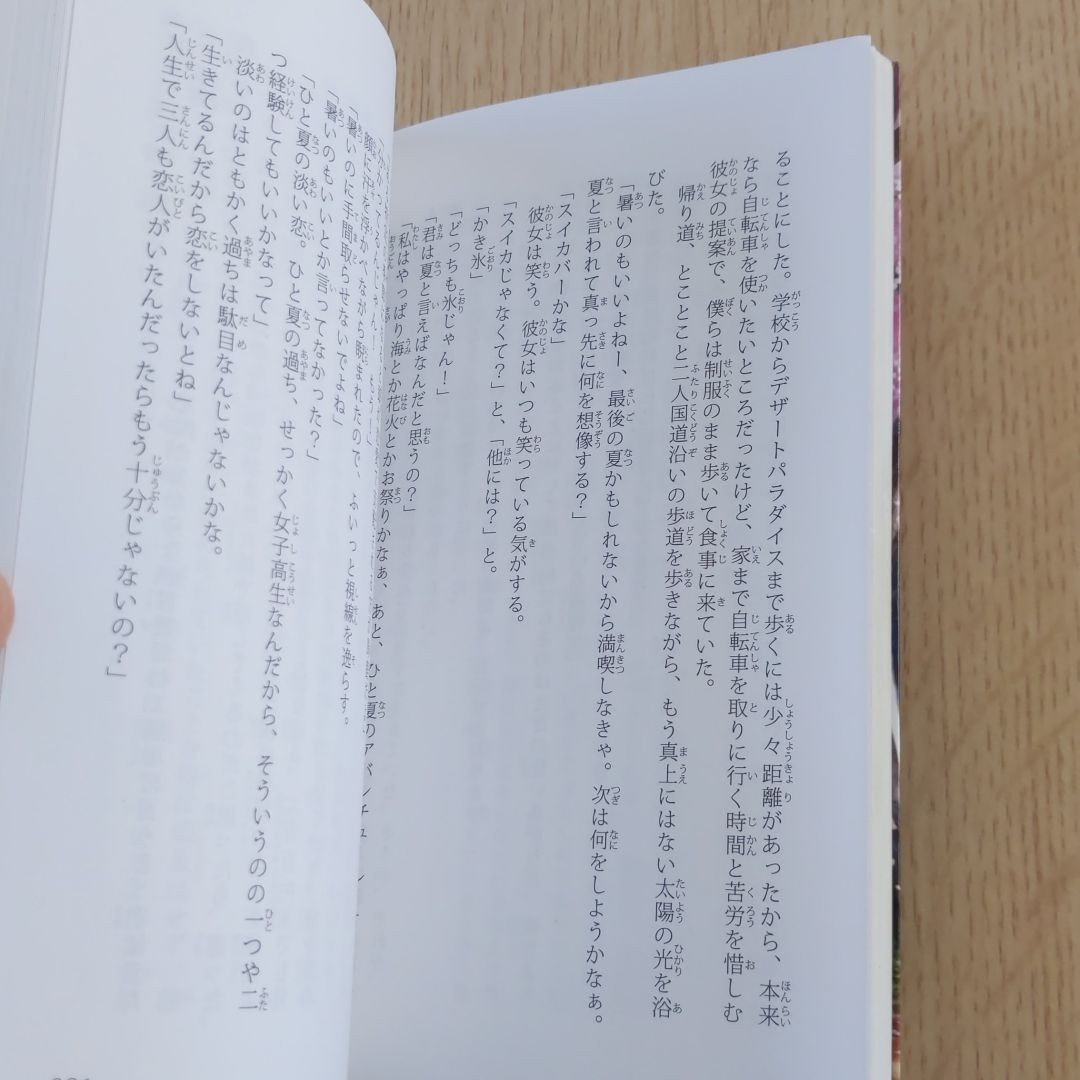 ることにした。学校からデザートパラダイスまで歩くには少々距離があったから、本来
なら自転車を使いたいところだったけど、家まで自転車を取りに行く時間と苦労を惜しむ
彼女の提案で、僕らは制服のまま歩いて食事に来ていた。
帰り道、とことこと二人国道沿いの歩道を歩きながら、もう真上にはない太陽の光を浴
びた。
「暑いのもいいよねー、最後の夏かもしれないから満喫しなきゃ。次は何をしようかなぁ。
夏と言われて真っ先に何を想像する?」
「スイカバーかな」
彼女は笑う。彼女はいつも笑っている気がする。
「スイカじゃなくて?」と、「他には?」と。
「かき氷」
「どっちも氷じゃん!」
「君は夏と言えばなんだと思うの?」
「私はやっぱり海とか花火とかお祭りかなぁ、あと、ひと夏のアバンチュ
顔に汗を浮かべながら睨まれたので、ぷいっと視線を逸らす。
「暑いのに手間取らせないでよね」
「暑いのもいいとか言ってなかった?」
「ひと夏の淡い恋。ひと夏の過ち、せっかく女子高生なんだから、そういうのの一つや二
つ経験してもいいかなって」
淡いのはともかく過ちは駄目なんじゃないかな。
「生きてるんだから恋をしないとね」
「人生で三人も恋人がいたんだったらもう十分じゃないの?」